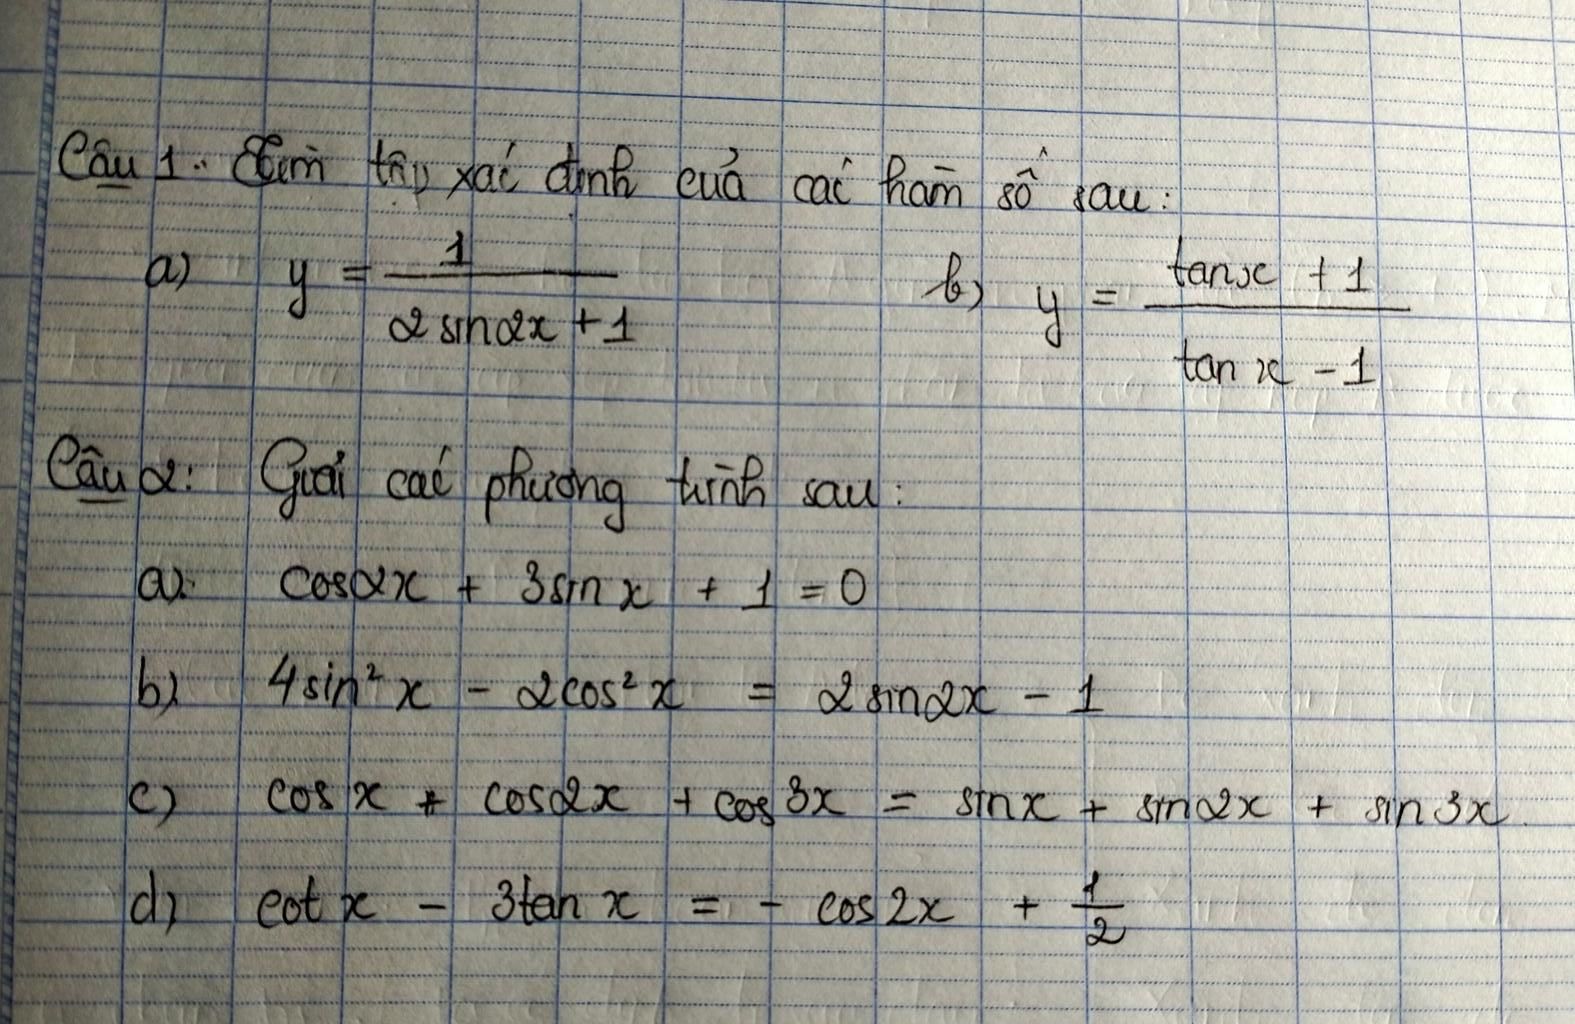 Câu 1: Tìm tập xác định của các hàm số sau:
a) y = 1 / (2 sin2x + 1) b) y = (tanx + 1) / (tan x - 1)
Câu 2: Giải các phương trình sau:
a) cos2x + 3sin x + 1 = 0
b) 4sin² x - 2cos² x = 2 sin2x - 1
c) cos x + cos2x + cos 3x = sinx + sin2x + sin 3x.
d) cot x - 3tan x = - cos 2x + 1/2